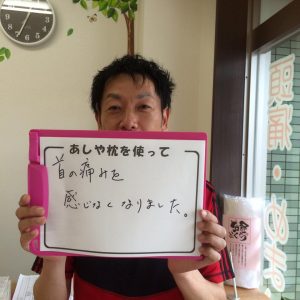 あしや枕を使って
首の痛みを
感じなくなりました。
頭痛・めま